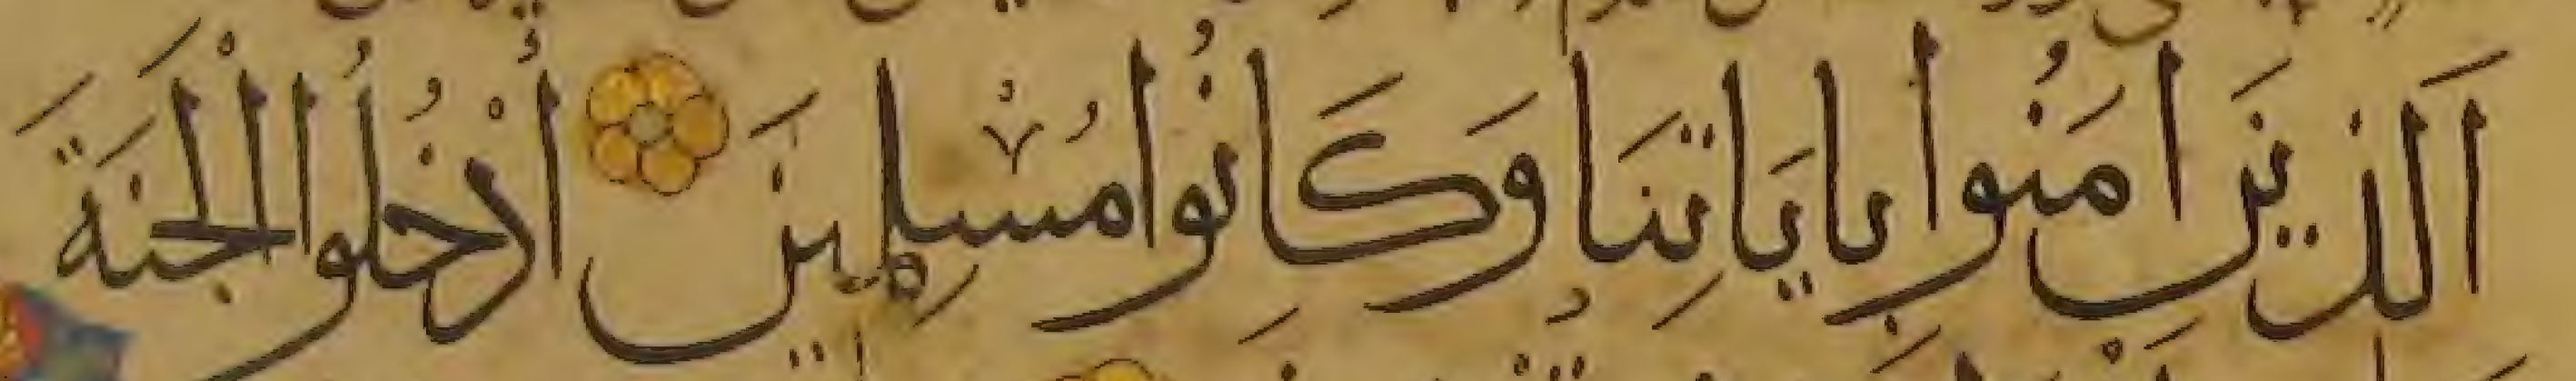 اَلَّذِينَ اٰمَنُوا بِاٰيَاتِنَا وَكَانُوا مُسْلِمِينَ اُدْخُلُوا الْجَنَّةَ